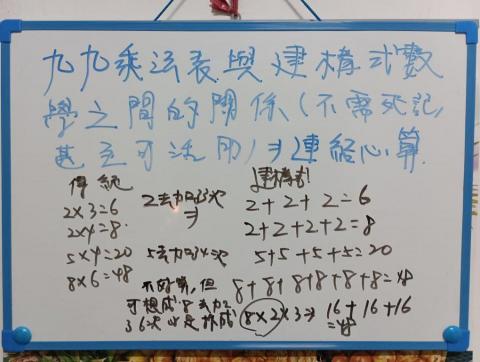 九九乘法表與建構式數
學之間的關係(不需死記,
甚至可活用)可連結心算
傳統
2×3=6
2×4=8
5×4=20
8×6=48
2去加3次
5去加4次
建構式
2+2+2=6
2+2+2+2=8
5+5+5+5=20
8+8+8+8+8+8=48
不好算,但
可想成8去加
6次 拆成
8×2×3
16+16+16
=48